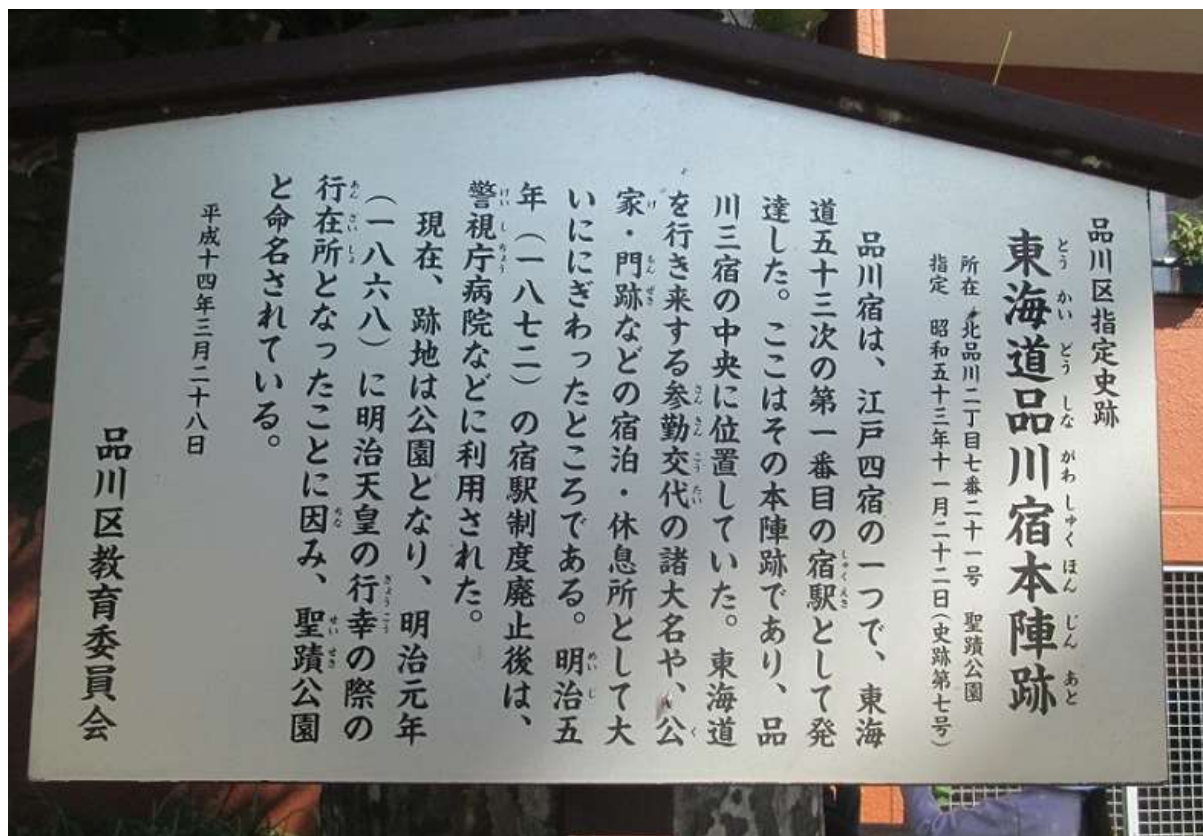 品川区指定史跡
東海道品川宿本陣跡
とうかいどうしながわしゅくほんじんあと
所在 北品川二丁目七番二十一号 聖蹟公園
指定 昭和五十三年十一月二十二日(史跡第七号)
品川宿は、江戸四宿の一つで、東海
道五十三次の第一番目の宿駅として発
しゅくえき
達した。ここはその本陣跡であり、品
川三宿の中央に位置していた。東海道
を行き来する参勤交代の諸大名や、公
さんきんこうたい
く
家・門跡などの宿泊・休息所として大
げ
もんぜき
いににぎわったところである。明治五
めいじ
年(一八七二)の宿駅制度廃止後は、
警視庁病院などに利用された。
けいしちょう
現在、跡地は公園となり、明治元年
(一八六八)に明治天皇の行幸の際の
ぎょうこう
行在所となったことに因み、聖蹟公園
あんざいしょ
ちな
せいせき
と命名されている。
平成十四年三月二十八日
品川区教育委員会